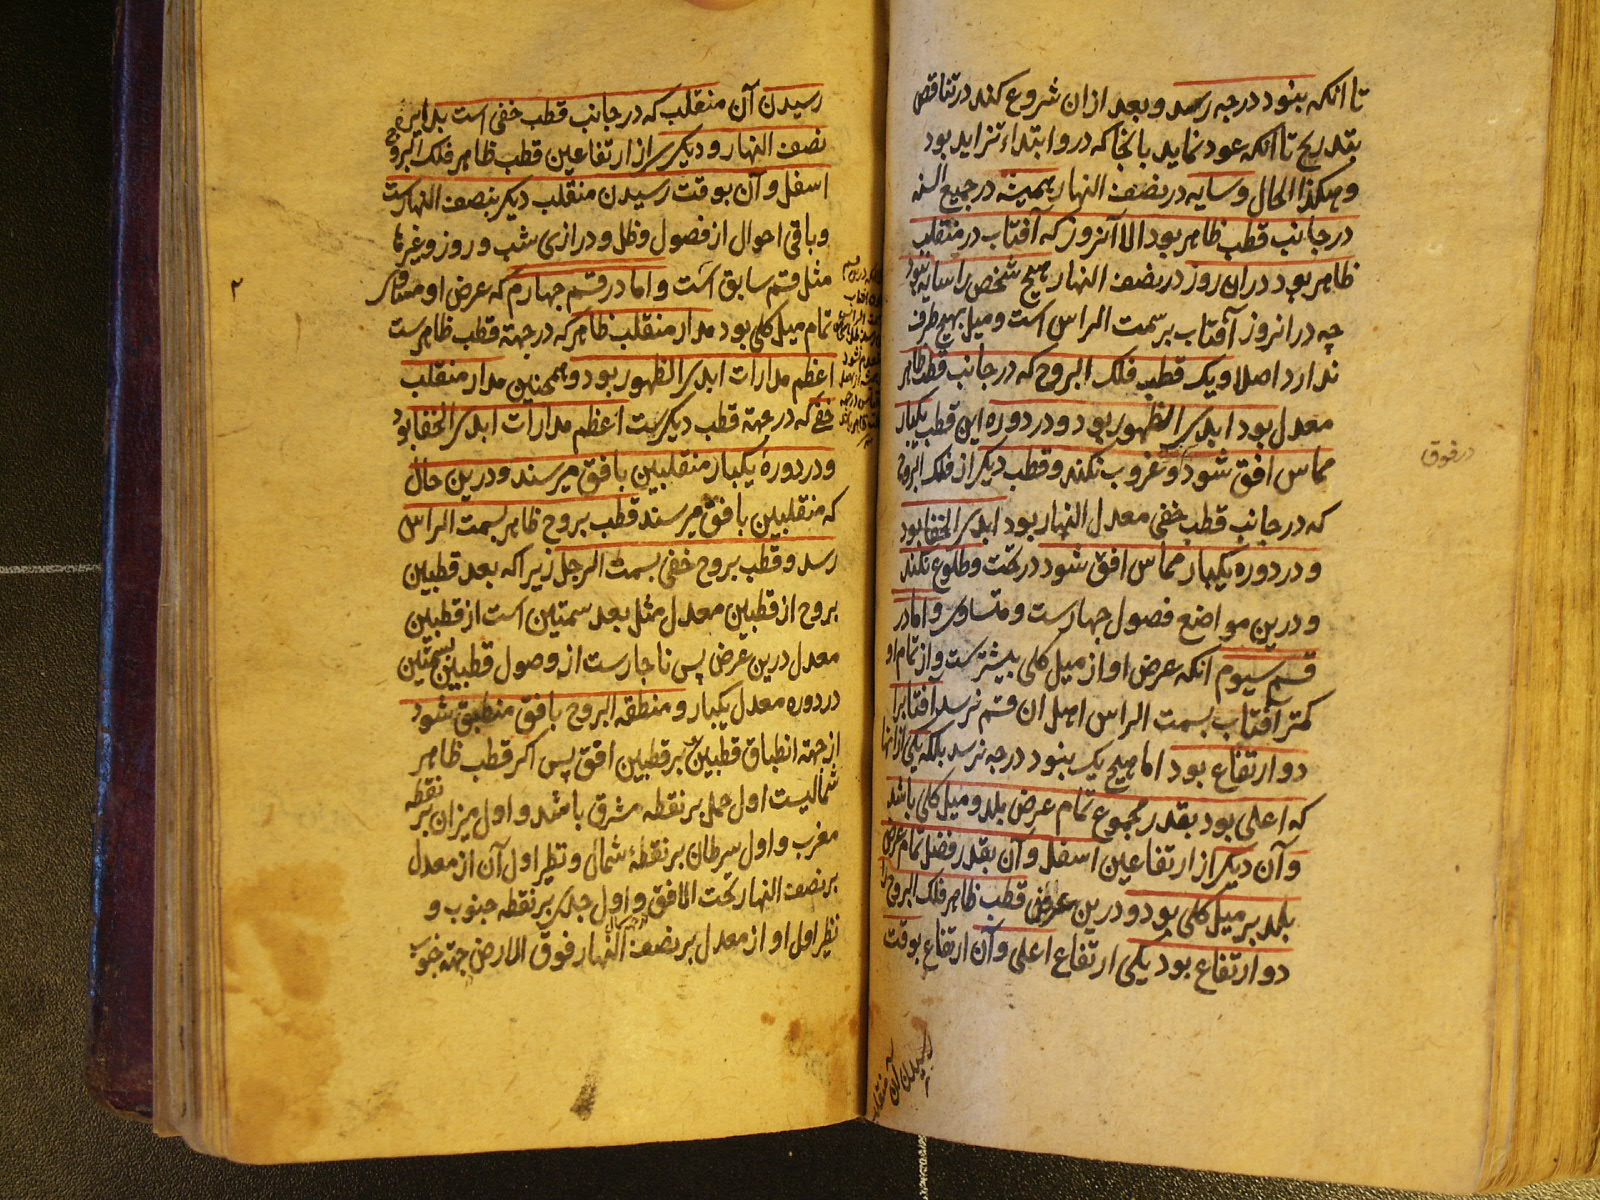 تا انکه بنود درجه رسد و بعد ازان شروع کند در تناقص
بتدریج تا انکه عود نماید بانجا که درو ابتداء تزاید بود
و هکذا الحال و سایه در نصف النهار همیشه در جمیع السنه
در جانب قطب ظاهر بود الا آنروز که آفتاب در منقلب
ظاهر بود دران روز در نصف النهار هیچ شخص را سایه نبود
چه درانروز آفتاب بر سمت الراس است و میل بهیچ طرف
ندارد اصلا و یک قطب فلک البروج که در جانب قطب ظاهر
معدل بود ابدی الظهور بود و در دوره این قطب یکبار
مماس افق شود و غروب نکند و قطب دیکر از فلک البروج
که در جانب قطب خفی معدل النهار بود ابدی الخفا بود
و در دوره یکبار مماس افق شود در تحت و طلوع نکند
و درین مواضع فصول چهارست و متساوی و اما در
قسم سیوم انکه عرض او از میل کلی بیشترست و از تمام او
کمتر آفتاب بسمت الراس اهل ان قسم نرسد افتابرا
دو ارتفاع بود اما هیچ یک بنود درجه نرسد بلکه یکی ازانها
که اعلی بود بقدر مجموع تمام عرض بلد و میل کلی باشد
و آن دیکر از ارتفاعین اسفل و آن بقدر فضل تمام عرض
بلد بر میل کلی بود و درین عرض قطب ظاهر فلک البروج را
دو ارتفاع بود یکی ارتفاع اعلی و آن ارتفاع بوقت
رسیدن آن منقلب
در فوق
رسیدن آن منقلب که در جانب قطب خفی است بدایره
نصف النهار و دیکری از ارتفاعین قطب ظاهر فلک البروج
اسفل و آن بوقت رسیدن منقلب دیکر بنصف النهارست
و باقی احوال از فصول و ظل و درازی شب و روز و غیرها
مثل قسم سابق است و اما در قسم چهارم که عرض او مساوی
تمام میل کلی بود مدار منقلب ظاهر که در جهة قطب ظاهرست
اعظم مدارات ابدی الظهور بود و همچنین مدار منقلب
خفی که در جهة قطب دیکرست اعظم مدارات ابدی الخفا بود
و در دوره یکبار منقلبین بافق میرسند و درین حال
که منقلبین بافق میرسند قطب بروج ظاهر بسمت الراس
رسد و قطب بروج خفی بسمت الرجل زیرا که بعد قطبین
بروج از قطبین معدل مثل بعد سمتین است از قطبین
معدل درین عرض پس ناچارست از وصول قطبین بسمتین
در دوره معدل یکبار و منطقه البروج بافق منطبق شود
از جهة انطباق قطبین بر قطبین افق پس اکر قطب ظاهر
شمالیست اول حمل بر نقطه مشرق باشد و اول میزان بر نقطه
مغرب و اول سرطان بر نقطهٔ شمال و نظیر اول آن از معدل
بر نصف النهار تحت الافق و اول جدی بر نقطه جنوب و
نظیر اول او از معدل بر نصف النهار فوق الارض جهة جنوب
۲